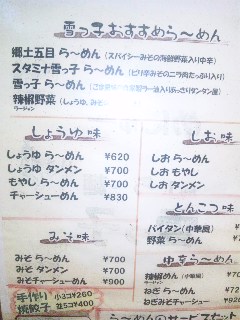 雪っ子おすすめら〜めん
郷土五目 ら〜めん (スパイシーみその海鮮野菜入り中辛)
スタミナ雪っ子 ら〜めん (ピリ辛みそのニラ肉たっぷり入り)
雪っ子 ら〜めん
辣椒野菜 (しょうゆ、みそ)
ラージャン
しょうゆ 味
しょうゆ ら〜めん ¥620
しょうゆ タンメン ¥700
もやし ら〜めん ¥700
チャーシューめん ¥830
しお 味
しお ら〜めん
しお もやし
しお タンメン
とんこつ 味
パイタン (中華風)
野菜 ら〜めん
みそ 味
みそ ら〜めん ¥700
みそ タンメン ¥700
みそチャーシューめん ¥900
ら〜めん
辣椒めん
ラージャン
ねぎ ら〜めん
ねぎみそチャーシュー
手作り 小3コ¥260
焼餃子 並5コ¥400
ら〜めんのサービスセット